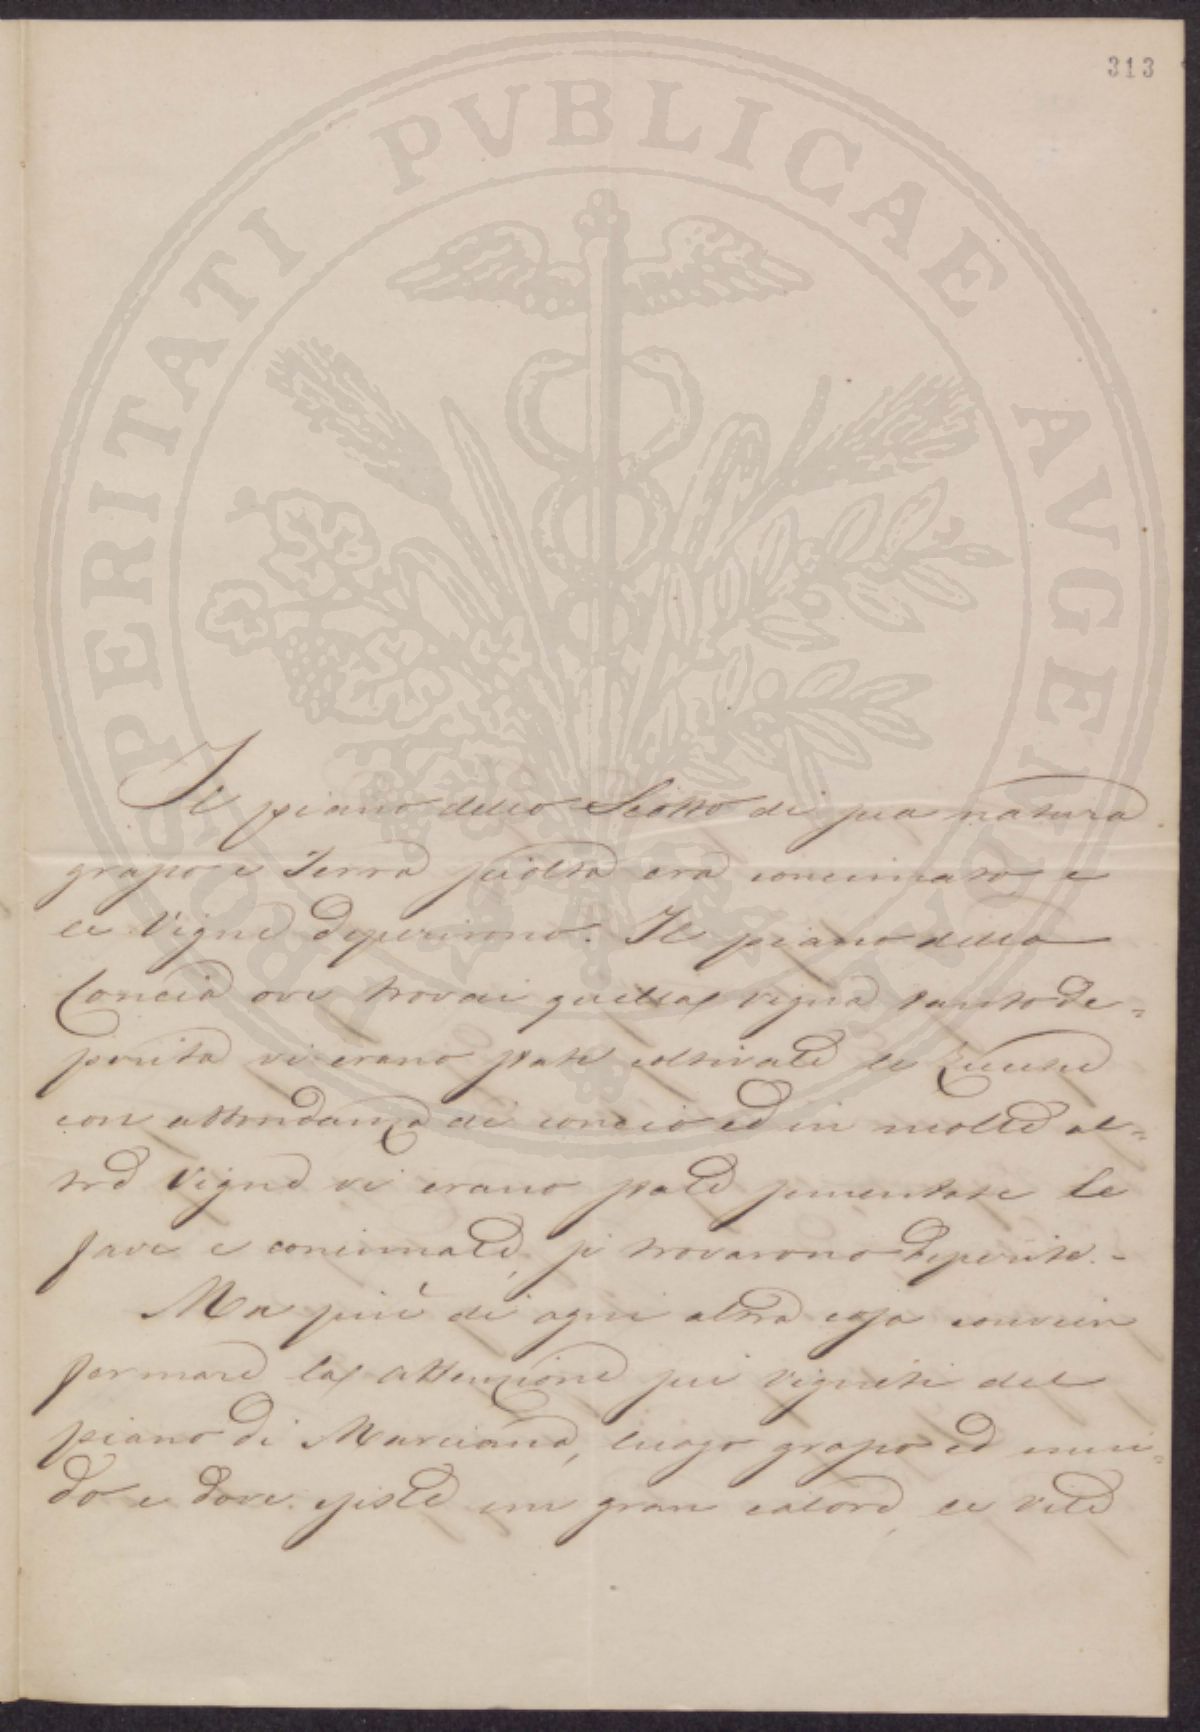 313
PROSPERITATI PVBLICAE AVGENDAE
Il piano dello Scotto di sua natura
grasso e Terra sciolta era concimato e
le Vigne deperirono. Il piano della
Concia ove trovai quella vigna tanto de=
perita vi erano state coltivate le Zucche
con abbondanza di concio ed in molte al=
tre Vigne vi erano state sementate le
fave e concimate, si trovarono deperite.-
Ma più di ogni altra cosa convien
formare la attenzione sui vigneti del
piano di Marciana, luogo grasso ed umi=
do e dove esiste un gran calore, le Vite